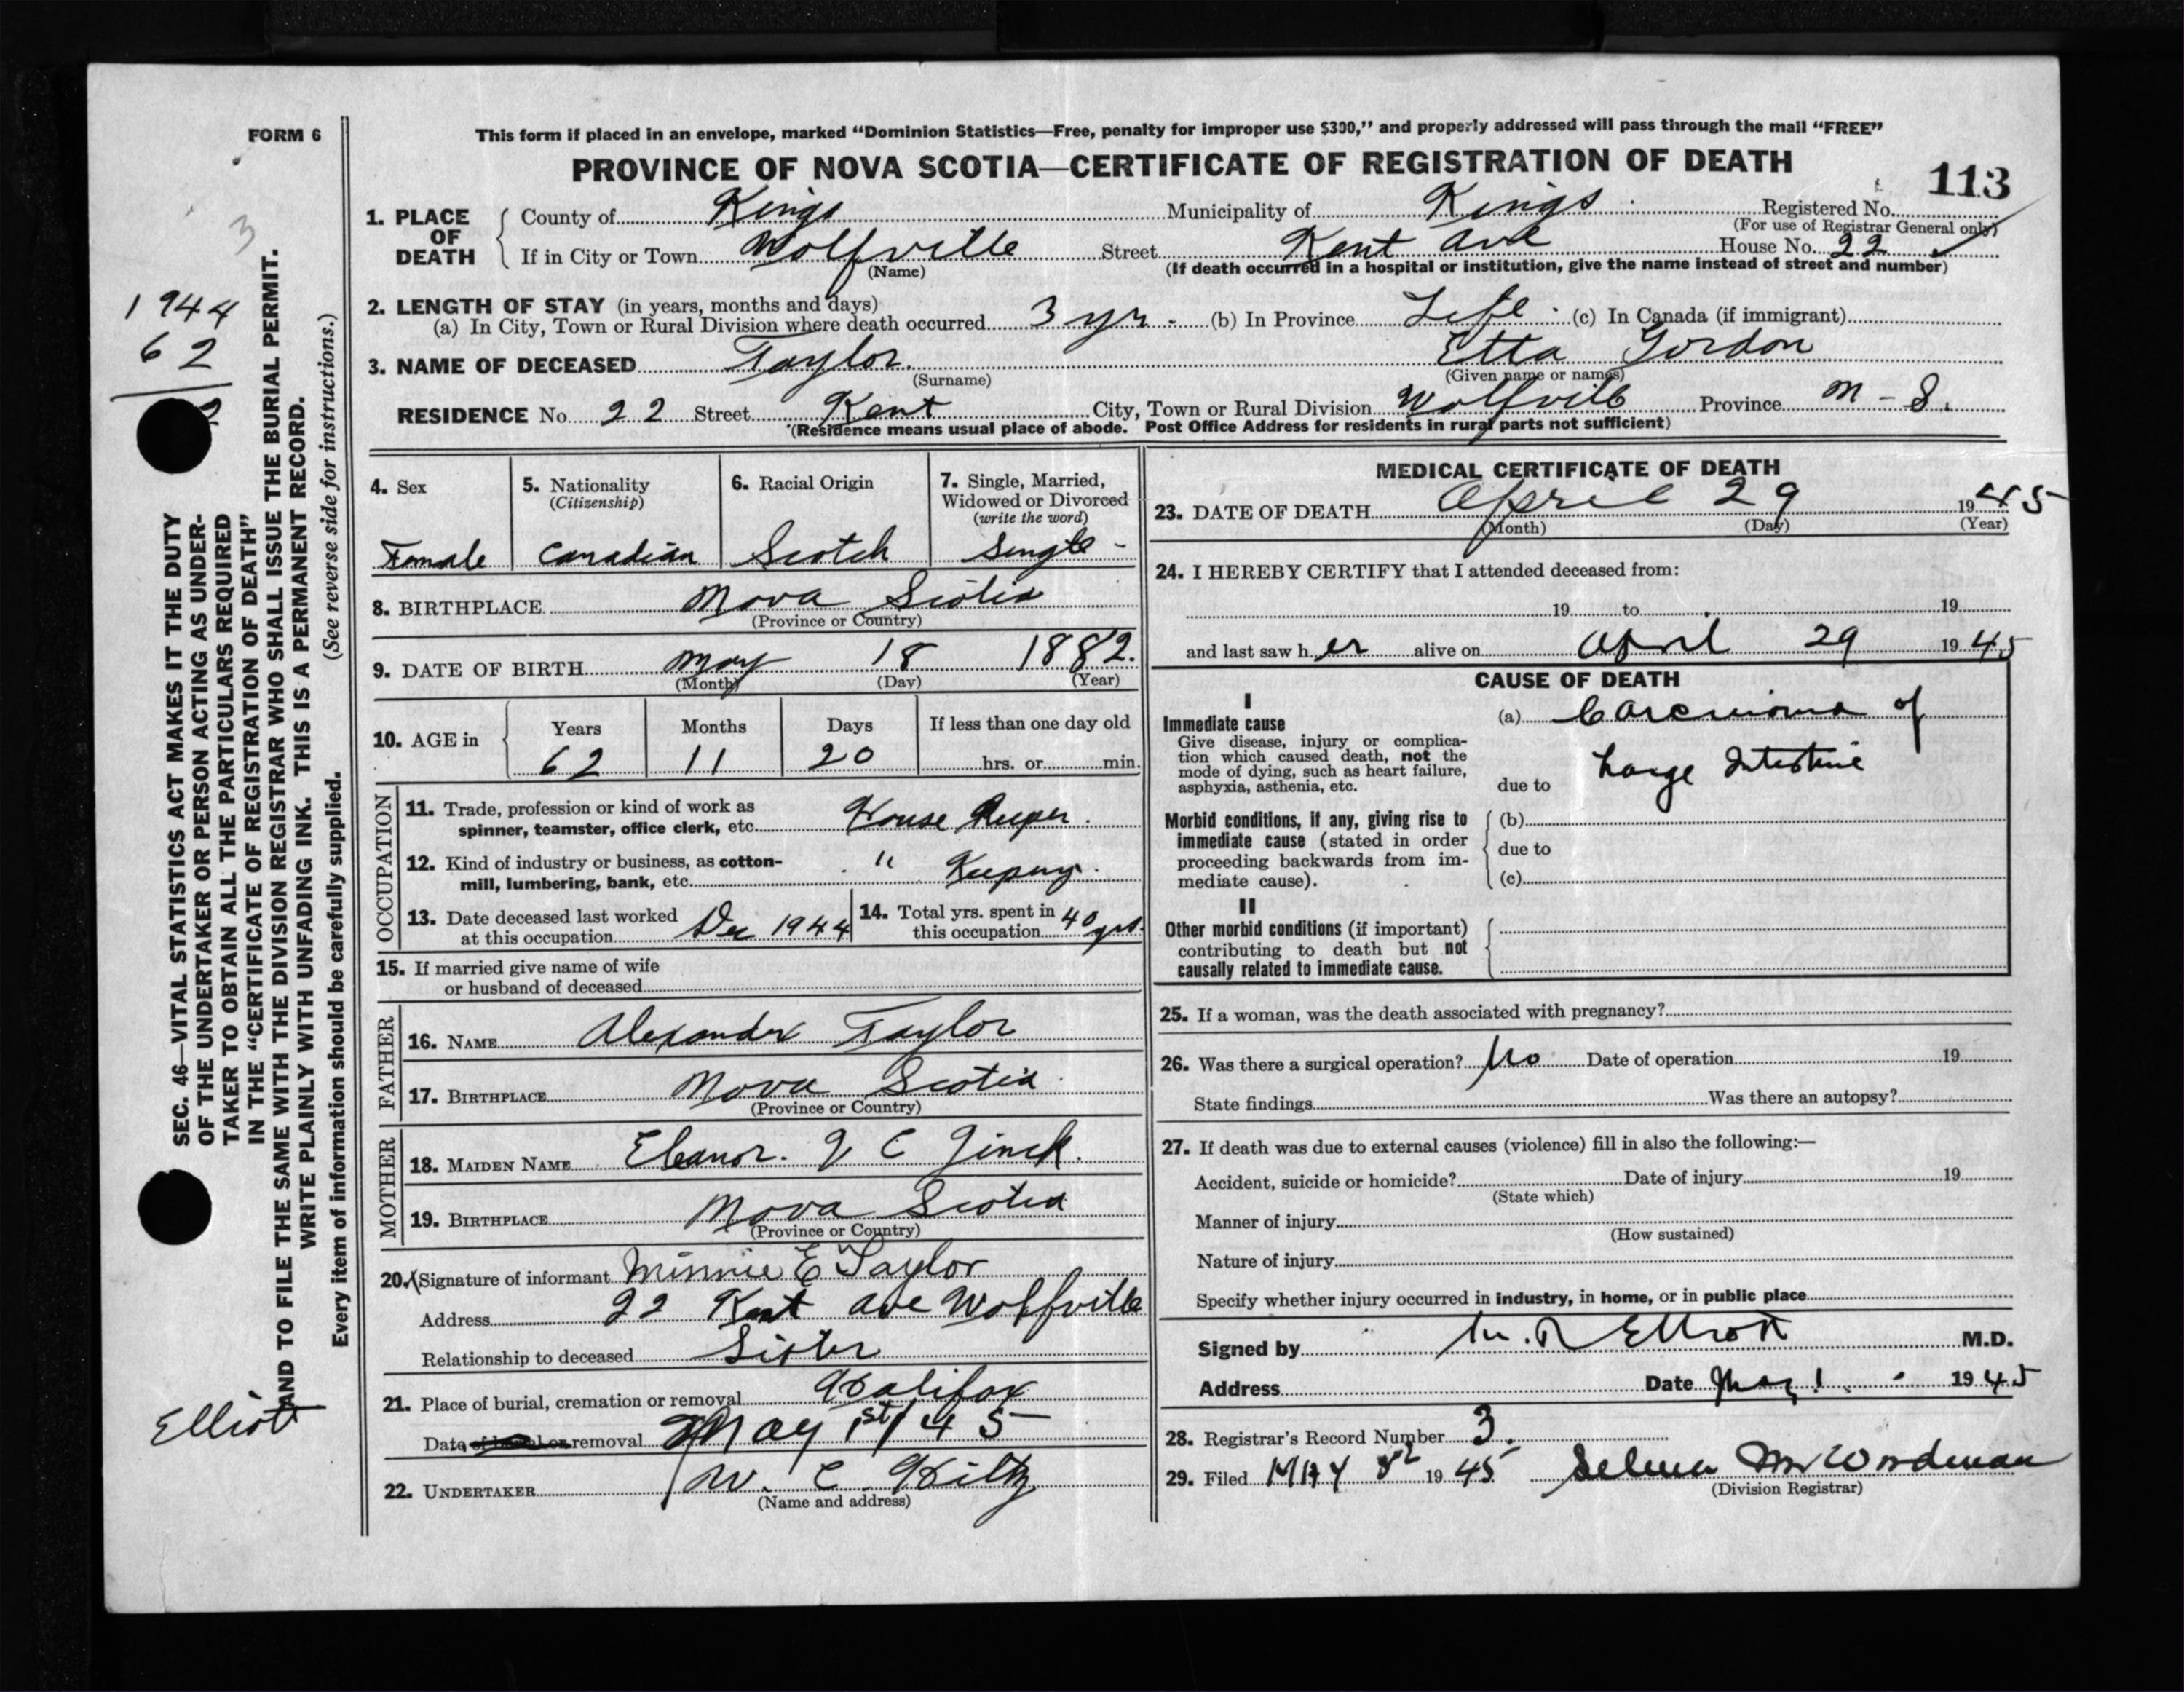 FORM 6
This form if placed in an envelope, marked “Dominion Statistics—Free, penalty for improper use $300,” and properly addressed will pass through the mail “FREE”
PROVINCE OF NOVA SCOTIA—CERTIFICATE OF REGISTRATION OF DEATH
113
1. PLACE OF DEATH
County of Kings Municipality of Kings Registered No.
(For use of Registrar General only)
If in City or Town Wolfville Street Kent Ave House No. 22
(Name) (If death occurred in a hospital or institution, give the name instead of street and number)
2. LENGTH OF STAY (in years, months and days)
(a) In City, Town or Rural Division where death occurred 3 yr - (b) In Province Life (c) In Canada (if immigrant)
3. NAME OF DECEASED Taylor. Etta Gordon
(Surname) (Given name or names)
RESIDENCE No. 22 Street Kent City, Town or Rural Division Wolfville Province N-S.
(Residence means usual place of abode. Post Office Address for residents in rural parts not sufficient)
4. Sex
Female
5. Nationality
(Citizenship)
Canadian
6. Racial Origin
Scotch
7. Single, Married,
Widowed or Divorced
(write the word)
Single -
8. BIRTHPLACE Nova Scotia
(Province or Country)
9. DATE OF BIRTH May 18 1882.
(Month) (Day) (Year)
10. AGE in
Years Months Days If less than one day old
62 11 20 hrs. or min.
OCCUPATION
11. Trade, profession or kind of work as
spinner, teamster, office clerk, etc. House Keeper.
12. Kind of industry or business, as cotton-
mill, lumbering, bank, etc. " Keeping.
13. Date deceased last worked
at this occupation Dec 1944
14. Total yrs. spent in
this occupation 40 yrs.
15. If married give name of wife
or husband of deceased
FATHER
16. NAME Alexander Taylor
17. BIRTHPLACE Nova Scotia
(Province or Country)
MOTHER
18. MAIDEN NAME Eleanor. J C Jinck.
19. BIRTHPLACE Nova Scotia
(Province or Country)
20. Signature of informant Minnie E Taylor
Address 22 Kent Ave Wolfville
Relationship to deceased Sister
21. Place of burial, cremation or removal Halifax
Date removal May 1st/45
22. UNDERTAKER W. C. Hiltz
(Name and address)
MEDICAL CERTIFICATE OF DEATH
23. DATE OF DEATH April 29 1945
(Month) (Day) (Year)
24. I HEREBY CERTIFY that I attended deceased from:
19 to 19
and last saw h er alive on April 29 1945
CAUSE OF DEATH
I
Immediate cause
Give disease, injury or complica-
tion which caused death, not the
mode of dying, such as heart failure,
asphyxia, asthenia, etc.
(a) Carcinoma of
due to Large Intestine
Morbid conditions, if any, giving rise to
immediate cause (stated in order
proceeding backwards from im-
mediate cause).
(b)
due to
(c)
II
Other morbid conditions (if important)
contributing to death but not
causally related to immediate cause.
25. If a woman, was the death associated with pregnancy?
26. Was there a surgical operation? No Date of operation 19
State findings Was there an autopsy?
27. If death was due to external causes (violence) fill in also the following:—
Accident, suicide or homicide? Date of injury 19
(State which)
Manner of injury
(How sustained)
Nature of injury
Specify whether injury occurred in industry, in home, or in public place
Signed by M. R Elliott M.D.
Address Date May 1 1945
28. Registrar's Record Number 3.
29. Filed MAY 1945 Selena M Wordman
(Division Registrar)
SEC. 46—VITAL STATISTICS ACT MAKES IT THE DUTY
OF THE UNDERTAKER OR PERSON ACTING AS UNDER-
TAKER TO OBTAIN ALL THE PARTICULARS REQUIRED
IN THE “CERTIFICATE OF REGISTRATION OF DEATH”
AND TO FILE THE SAME WITH THE DIVISION REGISTRAR WHO SHALL ISSUE THE BURIAL PERMIT.
WRITE PLAINLY WITH UNFADING INK. THIS IS A PERMANENT RECORD.
Every item of information should be carefully supplied. (See reverse side for instructions.)
3
1944
62
Elliott